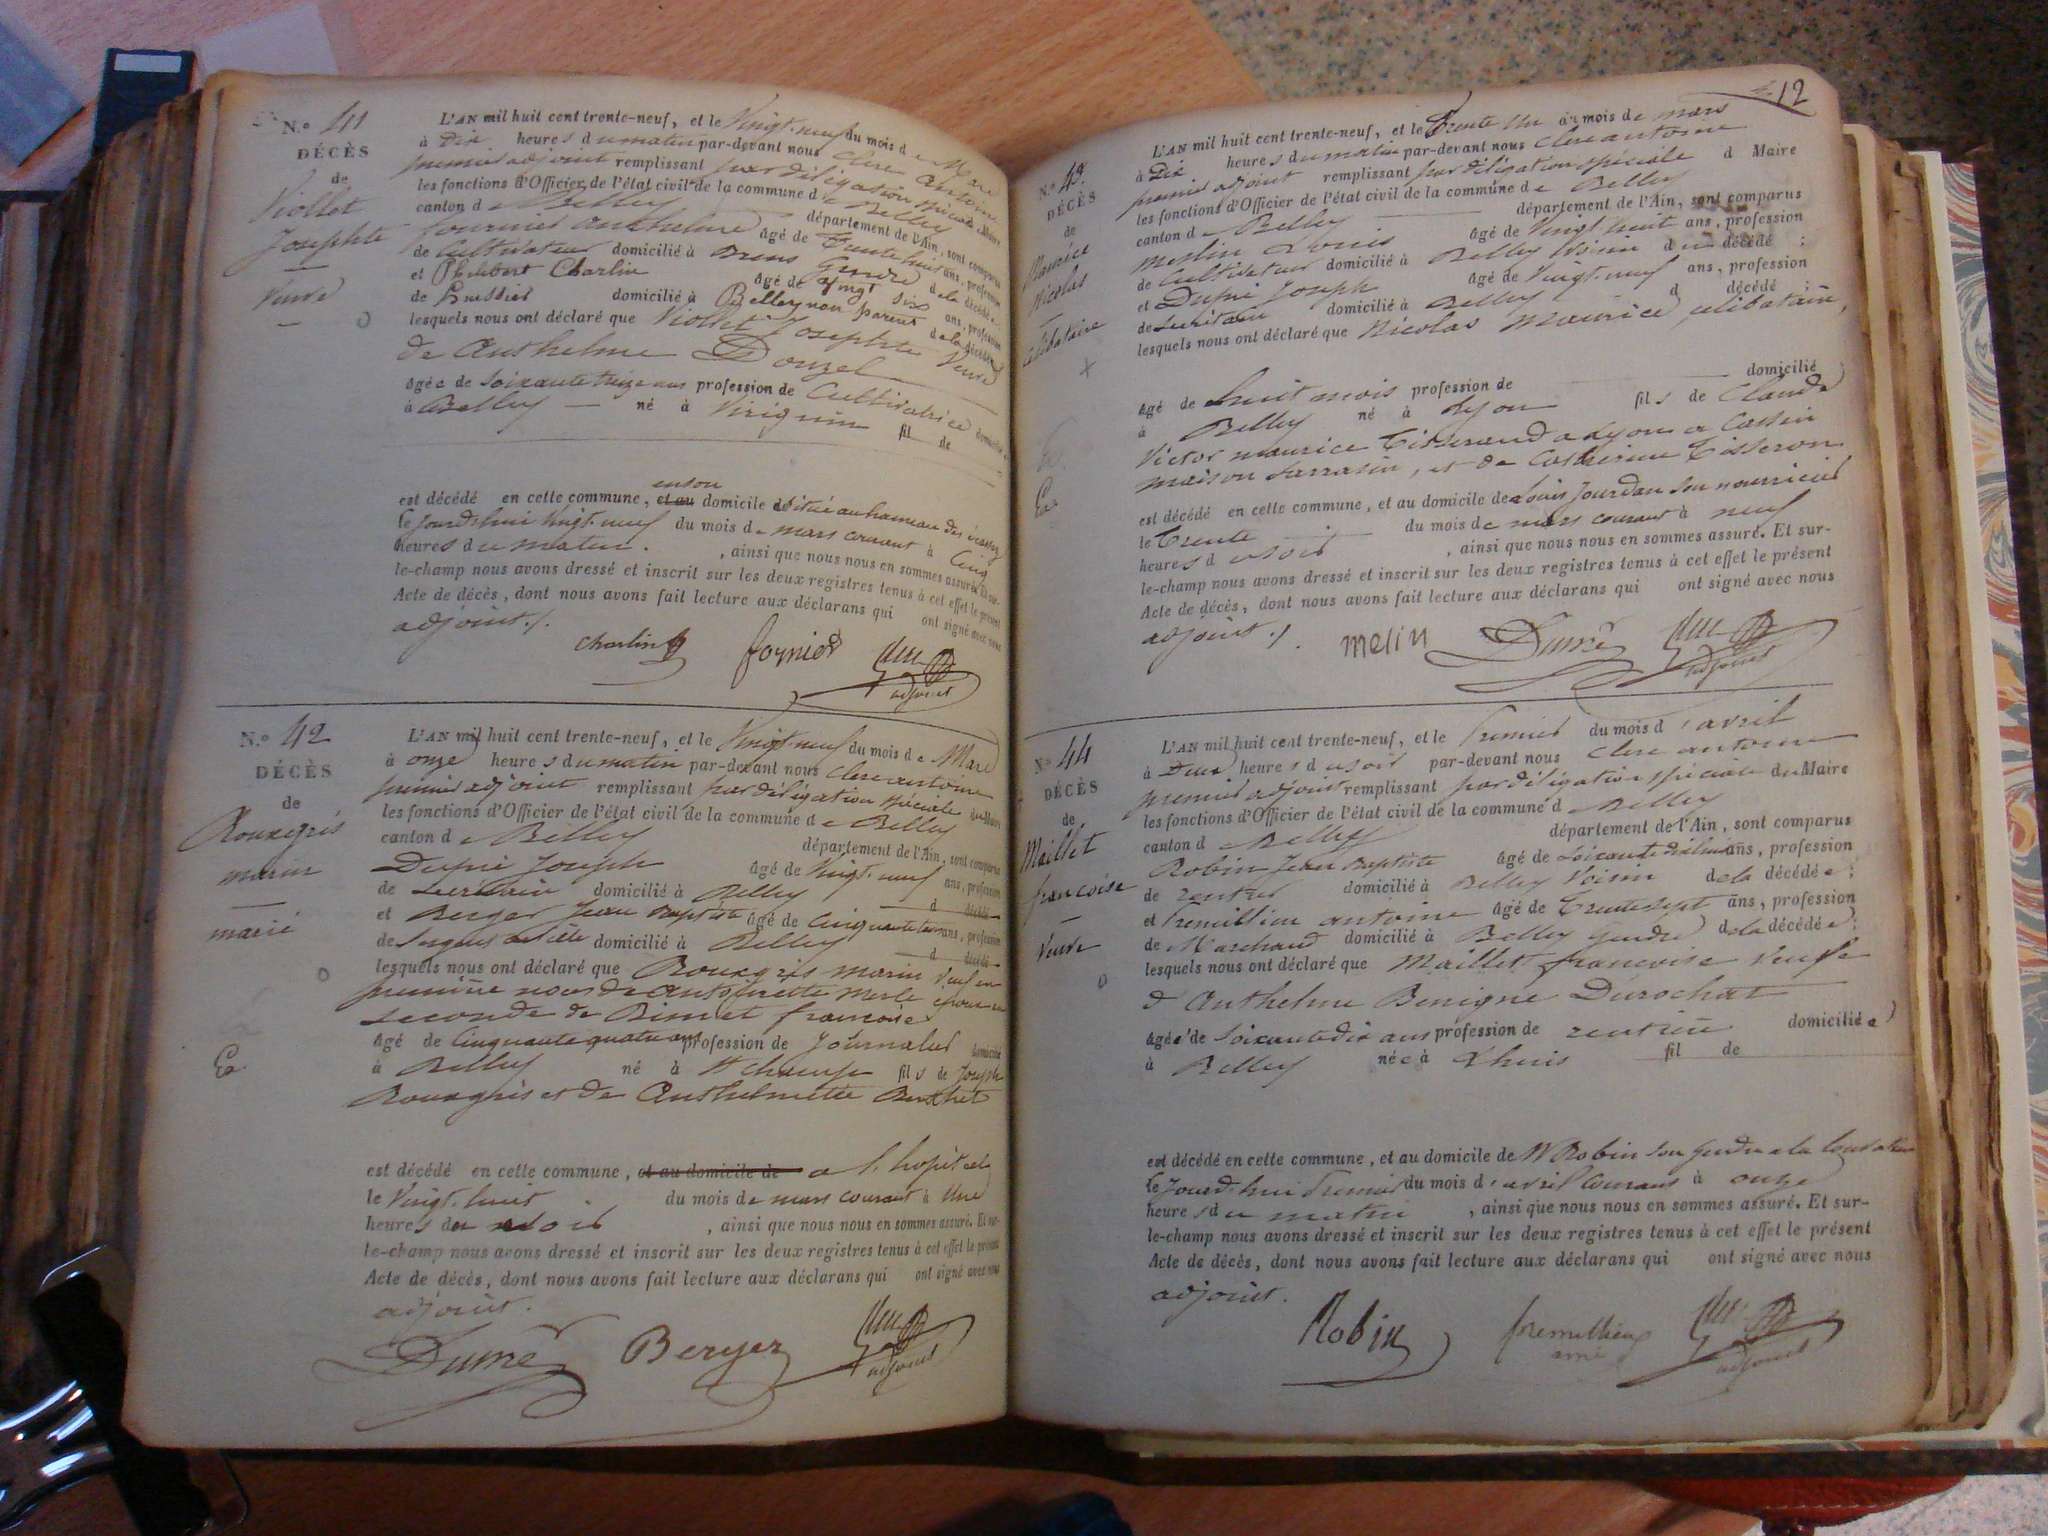 N.º 41
DÉCÈS
de
Viollet
Josephte
Veuve
L'AN mil huit cent trente-neuf, et le Vingt-neuf du mois de Mars
à Dix heures du matin par-devant nous Clerc Antoine
premier adjoint remplissant par délégation spéciale du Maire
les fonctions d'Officier de l'état civil de la commune de Belley
canton de Belley département de l'Ain, sont comparus
fournier anthelme âgé de Trente huit ans, profession
de Cultivateur domicilié à Brens Gendre de la décédée
et Philibert Charlin âgé de Vingt six ans, profession
de huissier domicilié à Belley non parent de la décédée
lesquels nous ont déclaré que Viollet Josephte Veuve
de Anthelme Douzel
âgée de soixante treize ans profession de Cultivatrice domiciliée
à Belley né à Virignin fil de
est décédé en cette commune, et au domicile de situé au hameau des
en son
le jourd'hui vingt-neuf du mois de mars courant à Cinq
heures du matin. , ainsi que nous nous en sommes assuré. Et sur-
le-champ nous avons dressé et inscrit sur les deux registres tenus à cet effet le présent
Acte de décès, dont nous avons fait lecture aux déclarans qui ont signé avec nous
adjoint ./.
Charlin fornier adjoint
N.º 42
DÉCÈS
de
Rouxgris
marin
marié
L'AN mil huit cent trente-neuf, et le Vingt-neuf du mois de Mars
à onze heures du matin par-devant nous Clerc antoine
premier adjoint remplissant par délégation spéciale du Maire
les fonctions d'Officier de l'état civil de la commune de Belley
canton de Belley département de l'Ain, sont comparus
Dupré Joseph âgé de Vingt-neuf ans, profession
de Secrétaire domicilié à Belley d décédé
et Berger Jean Baptiste âgé de Cinquante ans, profession
de domicilié à Belley d décédé
lesquels nous ont déclaré que Rouxgris marin Veuf en
première noces de antoinette merle époux en
seconde de Binnet francoise
âgé de Cinquante quatre ans profession de Journalier domicilié
à Belley né à St champ fils de Joseph
Rouxgris et de Anthelmette Berthet
est décédé en cette commune, et au domicile de a l'hopital
le Vingt-huit du mois de mars courant à Une
heures du soir , ainsi que nous nous en sommes assuré. Et sur-
le-champ nous avons dressé et inscrit sur les deux registres tenus à cet effet le présent
Acte de décès, dont nous avons fait lecture aux déclarans qui ont signé avec nous
adjoint.
Dupré Berger adjoint
12
N.º 43
DÉCÈS
de
Maurice
Nicolas
célibataire
L'AN mil huit cent trente-neuf, et le Trente un du mois de mars
à Dix heures du matin par-devant nous Clerc antoine
premier adjoint remplissant par délégation spéciale d Maire
les fonctions d'Officier de l'état civil de la commune de Belley
canton de Belley département de l'Ain, sont comparus
Meslin Louis âgé de Vingt huit ans, profession
de Cultivateur domicilié à Belley Voisin du décédé ;
et Dupré Joseph âgé de Vingt-neuf ans, profession
de Secrétaire domicilié à Belley d décédé ;
lesquels nous ont déclaré que Nicolas Maurice célibataire,
âgé de huit mois profession de domicilié
à Belley né à Lyon fils de Claude
Victor maurice Tisserand a Lyon a Cassin
maison Sarrasin, et de Catherine Tisseron
est décédé en cette commune, et au domicile de Louis Jourdan son nourricier
le Trente du mois de mars courant à neuf
heures du soir , ainsi que nous nous en sommes assuré. Et sur-
le-champ nous avons dressé et inscrit sur les deux registres tenus à cet effet le présent
Acte de décès, dont nous avons fait lecture aux déclarans qui ont signé avec nous
adjoint ./.
melin Dupré adjoint
N.º 44
DÉCÈS
de
Maillet
francoise
Veuve
L'AN mil huit cent trente-neuf, et le Premier du mois d'avril
à Deux heures du soir par-devant nous Clerc antoine
premier adjoint remplissant par délégation spéciale du Maire
les fonctions d'Officier de l'état civil de la commune d Belley
canton de Belley département de l'Ain, sont comparus
Robin Jean Baptiste âgé de ans, profession
de rentier domicilié à Belley Voisin de la décédée ;
et premillieu antoine âgé de Trente sept ans, profession
de Marchand domicilié à Belley Gendre de la décédée ;
lesquels nous ont déclaré que Maillet francoise Veuve
d Anthelme Benigne Durochat
âgée de soixante dix ans profession de rentière domiciliée
à Belley née à Lhuis fil de
est décédé en cette commune, et au domicile de Mr Robin son gendre
le jourd'hui Premier du mois d'avril courant à onze
heures du matin , ainsi que nous nous en sommes assuré. Et sur-
le-champ nous avons dressé et inscrit sur les deux registres tenus à cet effet le présent
Acte de décès, dont nous avons fait lecture aux déclarans qui ont signé avec nous
adjoint.
Robin premillieu adjoint